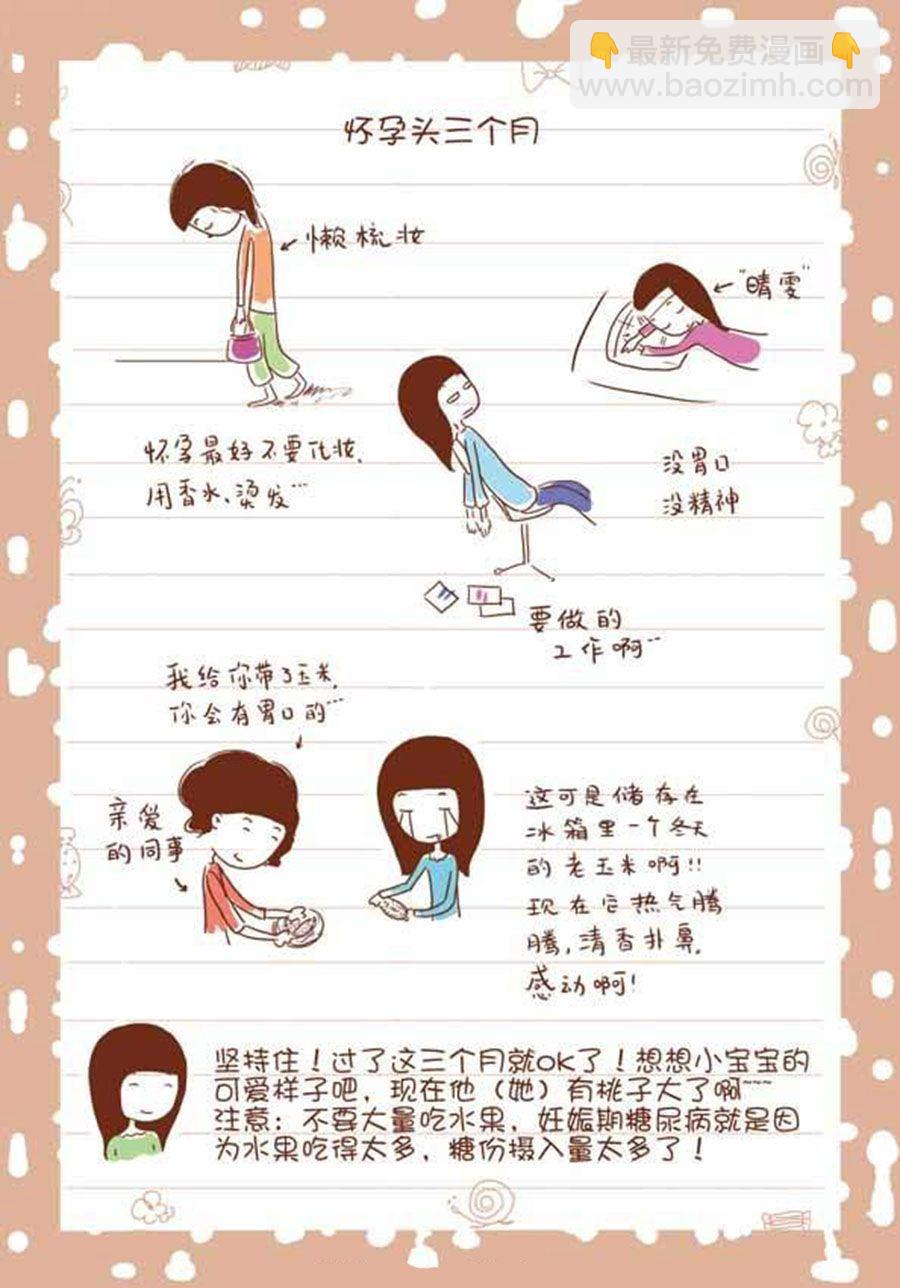 👇最新免费漫画👇
www.baozimh.com
怀孕头三个月
懒梳妆
"晴雯"
怀孕最好不要化妆,
用香水、烫发…
没胃口
没精神
要做的
工作啊…
我给你带了玉米,
你会有胃口的…
亲爱
的同事
这可是储存在
冰箱里一个冬天
的老玉米啊!!
现在它热气腾
腾,清香扑鼻,
感动啊!
坚持住！过了这三个月就OK了！想想小宝宝的
可爱样子吧，现在他（她）有桃子大了啊~~~
注意：不要大量吃水果，妊娠期糖尿病就是因
为水果吃得太多，糖份摄入量太多了！